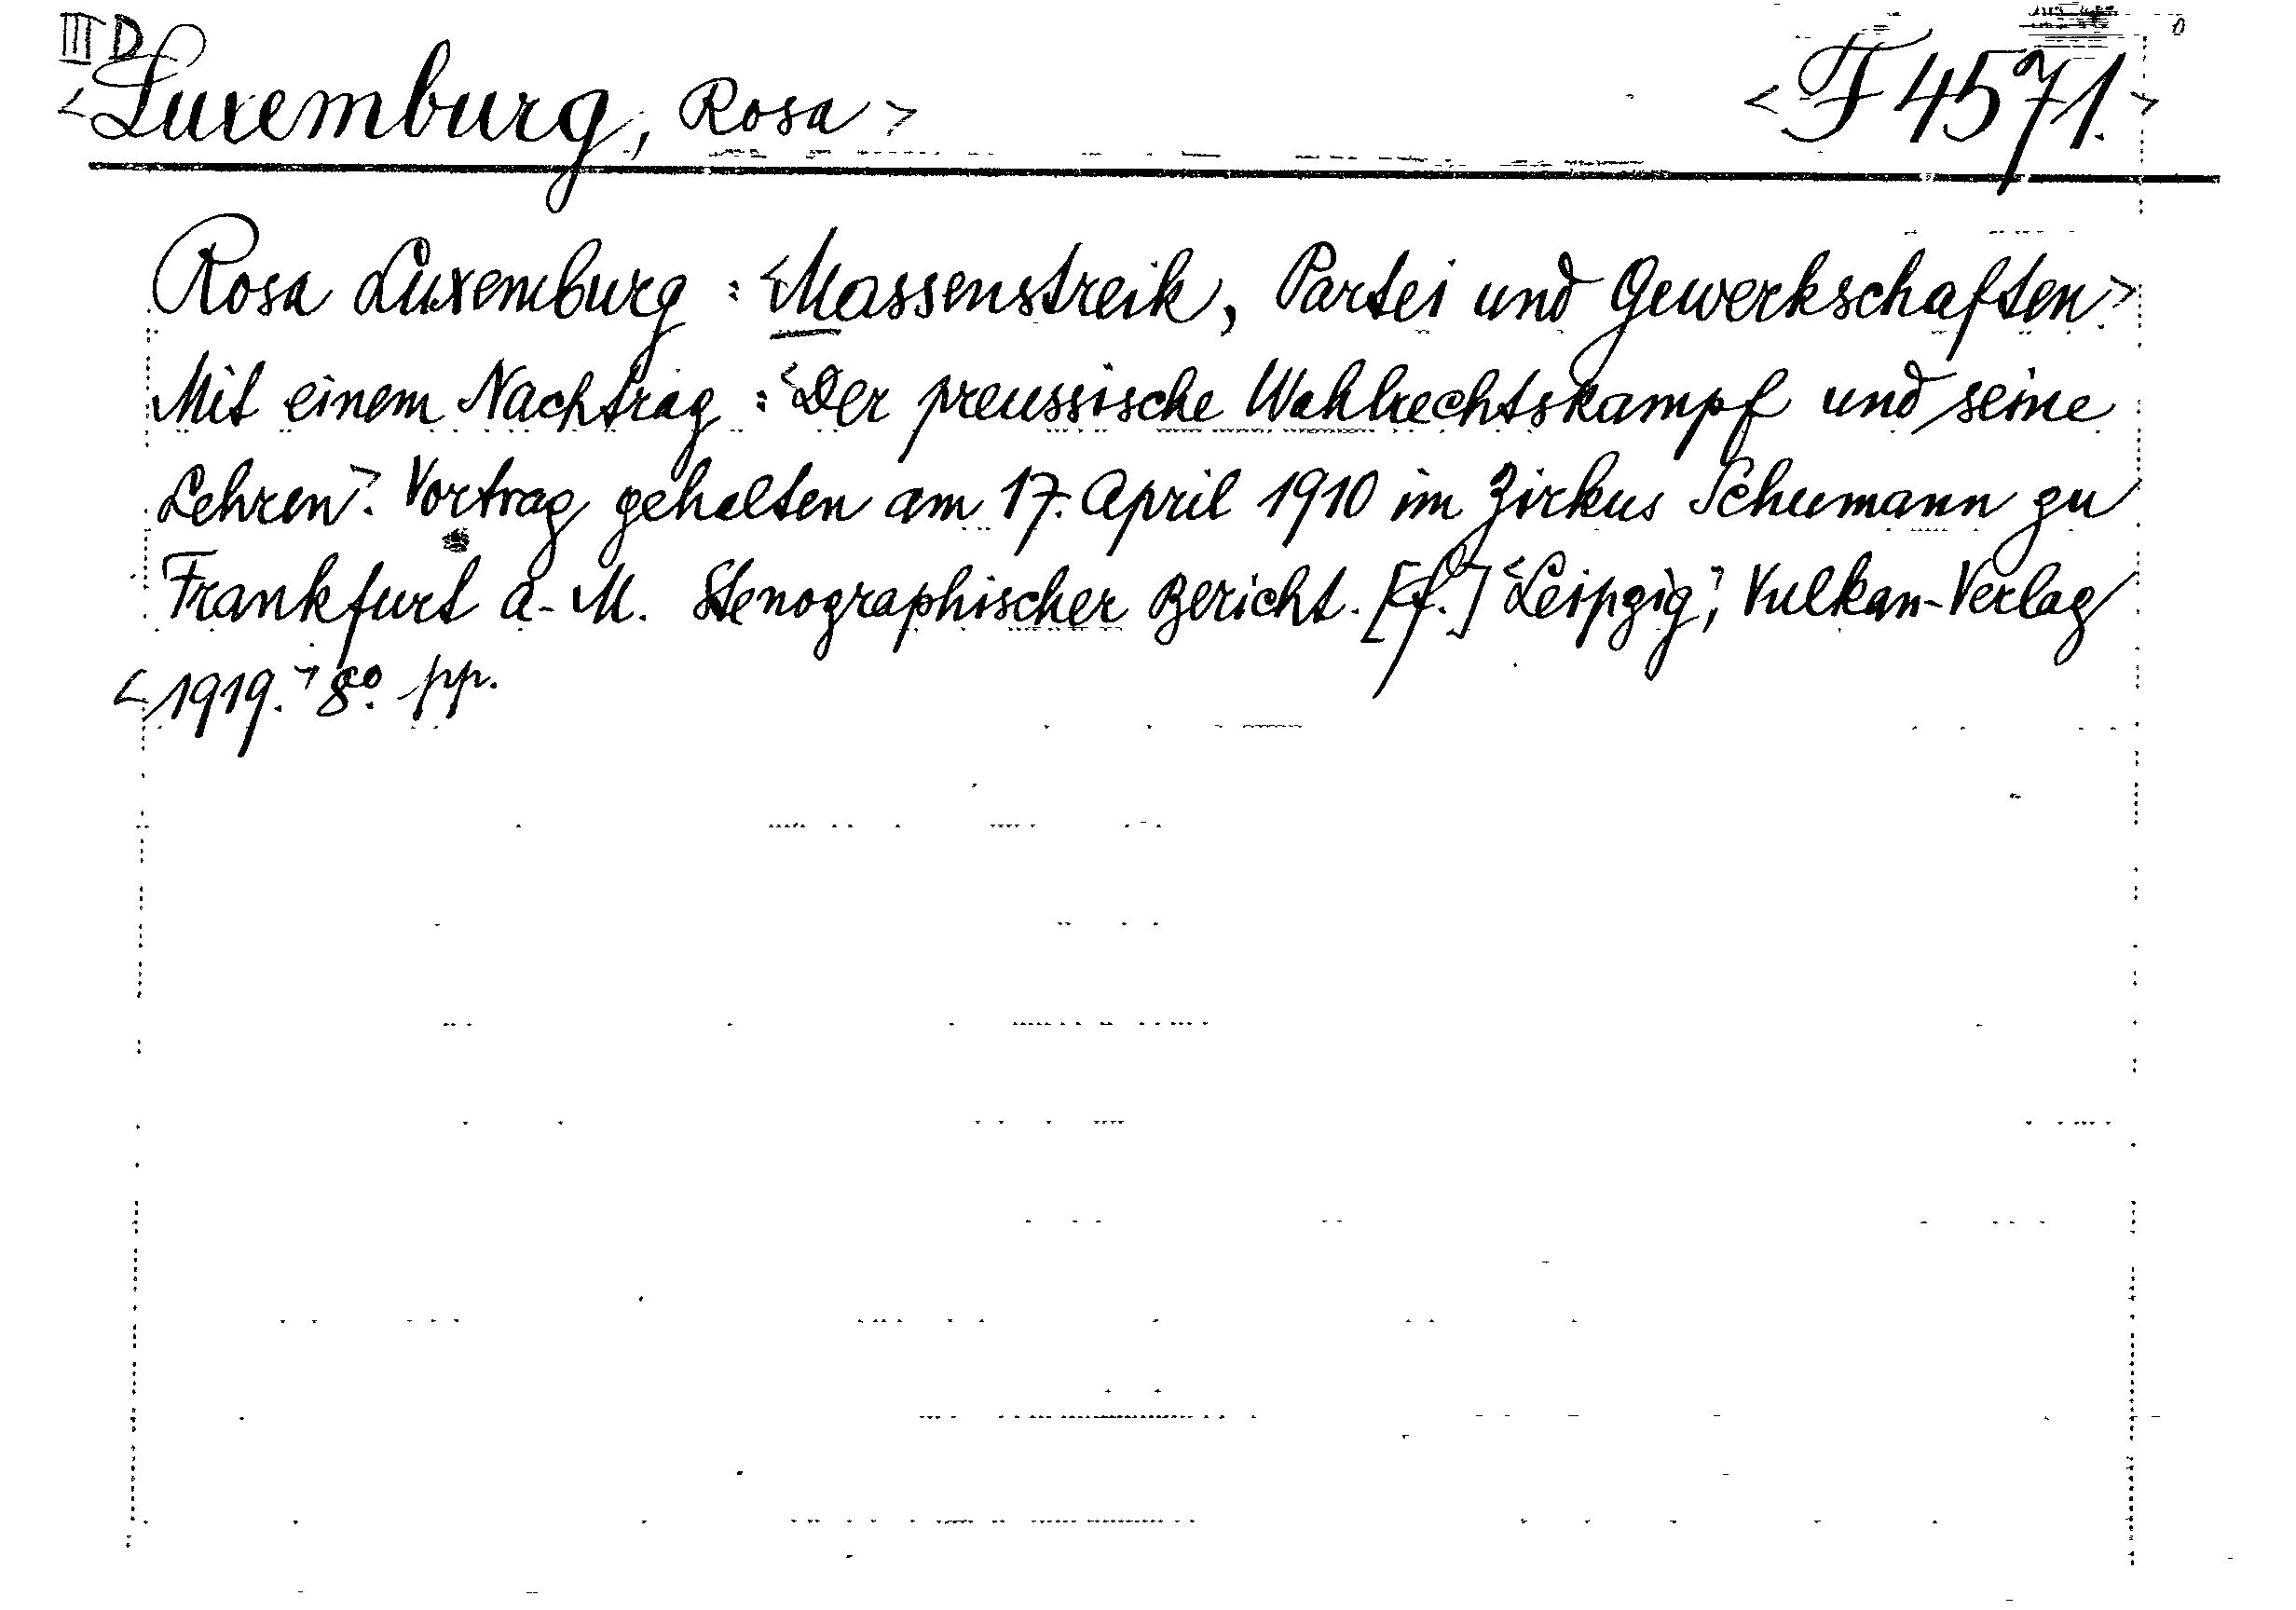 III D
<Luxemburg, Rosa> <F 4571.>
Rosa Luxemburg: <Massenstreik, Partei und Gewerkschaften>
Mit einem Nachtrag: <Der preussische Wahlrechtskampf und seine
Lehren>. Vortrag gehalten am 17. April 1910 im Zirkus Schumann zu
Frankfurt a. M. Stenographischer Bericht. [f.] <Leipzig>, Vulkan-Verlag
<1919.> 8º. pp.